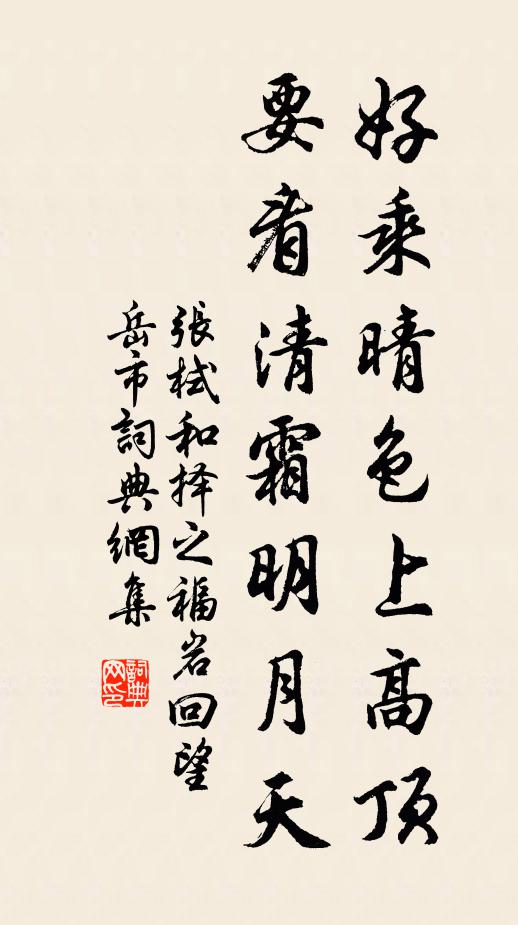 好乘晴色上高顶
要看清霜明月天
張栻和择之福岩回望
岳市詞典網集
詞典网印